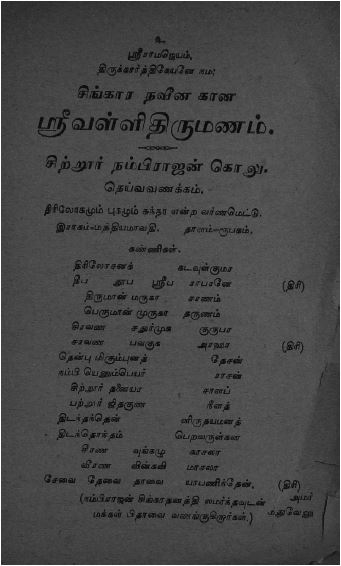 உ
ஸ்ரீராமஜெயம்.
திருக்கார்த்திகேயனே நம:
சிங்கார நவீன கான
ஸ்ரீவள்ளிதிருமணம்.
சிற்றூர் நம்பிராஜன் கொலு.
தெய்வவணக்கம்.
திரிலோகமும் புகழும் கந்தா என்ற வர்ணமெட்டு.
இராகம்-மத்தியமாவதி. தாளம்-ரூபகம்.
கண்ணிகள்.
திரிலோசனக் கடவுள்குமர
தீப தூப ஸ்ரீப ரரபரனே (திரி)
திருமான் மருகா சரணம்
பெருமான் முருகா தருணம்
சிரவண சதுர்முக குருபர
சரவண பவகுக அரஹர (திரி)
தென்பு மிகும்புனத் தேசன்
நம்பி யெனும்பெயர் ராசன்
சிற்றூர் தனையர சாளப்
பற்றூர் ஜிதகுண நீளத்
திடந்தந்தென் னிருதயமனத்
திடந்தொந்தம் பெறவருள்கன
சிரண வுங்கழு காசலா
வீரண விண்கவி மாசலா
சேவை தேவை தாவை யாபணிந்தேன். (திரி)
(நம்பிராஜன் சிங்காதனத்தி லமர்ந்தவுடன் அமர்
மக்கள் பிதாவை வணங்குகிறார்கள்.)